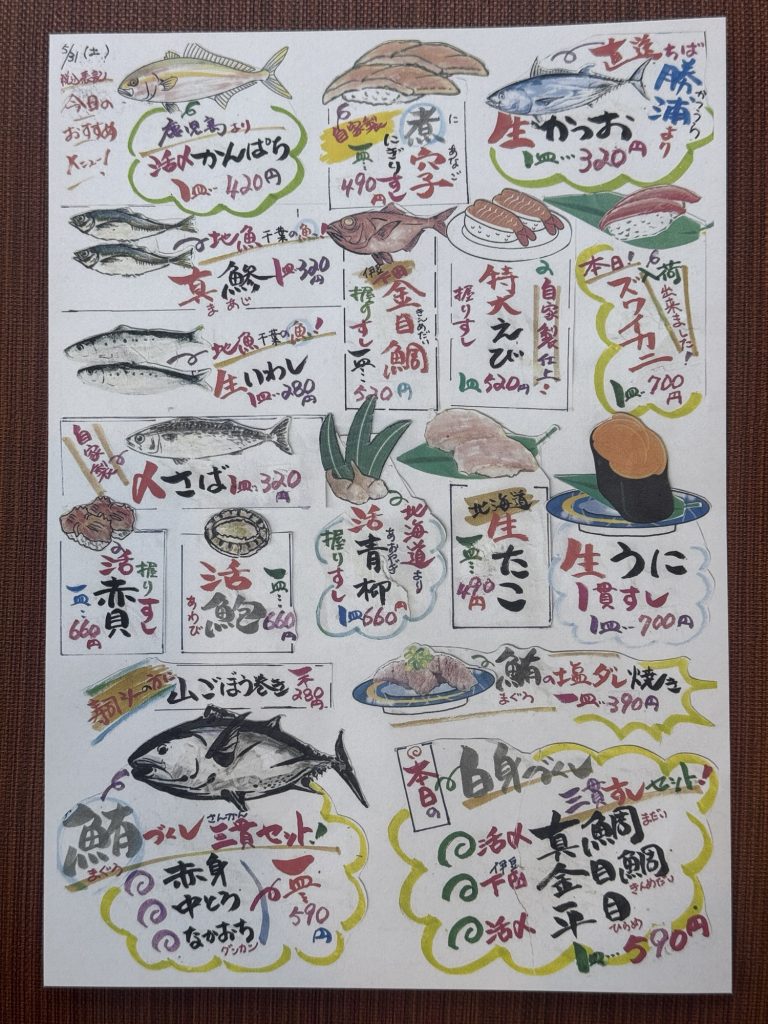 5/31(土)
税込表記
今日の
おすすめ
メニュー!
鹿児島より
活〆かんぱち
1皿…420円
自家製
煮穴子
に あなご
にぎりすし
一皿…490円
直送ちば
勝浦より
かつうら
生かつお
1皿…320円
地魚 千葉の魚
真鯵 1皿…320円
まあじ
地魚 千葉の魚!
生いわし
1皿…280円
伊豆下田
金目鯛
きんめだい
握りすし
一皿…520円
自家製仕上…
特大えび
握りすし
1皿520円
本日!
入荷出来ました!
ズワイカニ
1皿…700円
自家製
〆さば 1皿…320円
握りすし
活赤貝
一皿…660円
活鮑
あわび
一皿…660円
北海道より
活青柳
あおやぎ
握りすし
1皿660円
北海道
生たこ
一皿…490円
生うに
1貫すし
1皿…700円
寿司〆の方に
山ごぼう巻き
一本280円
鮪の塩ダレ焼き
まぐろ
一皿…390円
鮪づくし三貫セット!
まぐろ
さんかん
赤身
中とろ
なかおち
グンカン
一皿…590円
本日の
白身づくし
三貫すしセット!
活〆 真鯛 まだい
伊豆下田 金目鯛 きんめだい
活〆 平目 ひらめ
1皿…590円